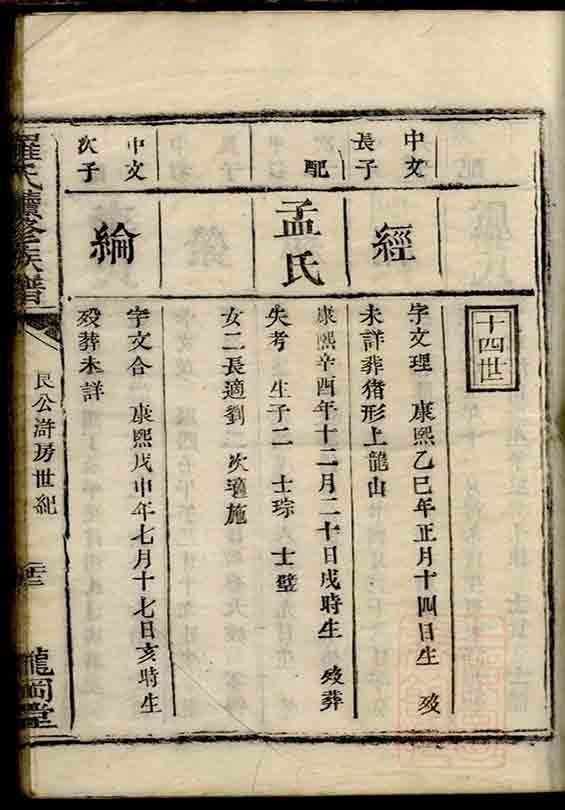 十四世
中文
長子
經
字文理 康熙乙巳年正月十四日生 歿
未詳葬猪形上龍山
配
孟氏
康熙辛酉年十二月二十日戌時生 歿葬
失考 生子二 士琮 士璧
女二長適劉 次適施
中文
次子
綸
字文合 康熙戊申年七月十七日亥時生
歿葬未詳
羅氏續修族譜
民公滸房世紀
龍岡堂